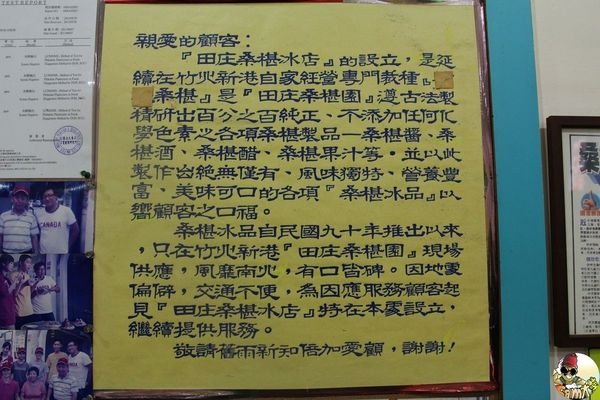 TEST REPORT
親愛的顧客:
『田庄桑椹冰店』的設立,是延
續在竹北新港自家經營專門栽種『
桑椹』是『田庄桑椹園』遵古法製
精研出百分之百純正、不添加任何化
學色素之各項桑椹製品—桑椹醬、桑
椹酒、桑椹醋、桑椹果汁等。並以此
製作台絶無僅有、風味獨特、營養豐
富、美味可口的各項『桑椹冰品』以
嚮顧客之口福。
桑椹冰品自民國九十年推出以來
,只在竹北新港『田庄桑椹園』現場
供應,風靡南北,有口皆碑。因地處
偏僻,交通不便,為因應服務顧客起
見『田庄桑椹冰店』特在本處設立,
繼續提供服務。
敬請舊雨新知倍加愛顧,謝謝!
CANADA
桑